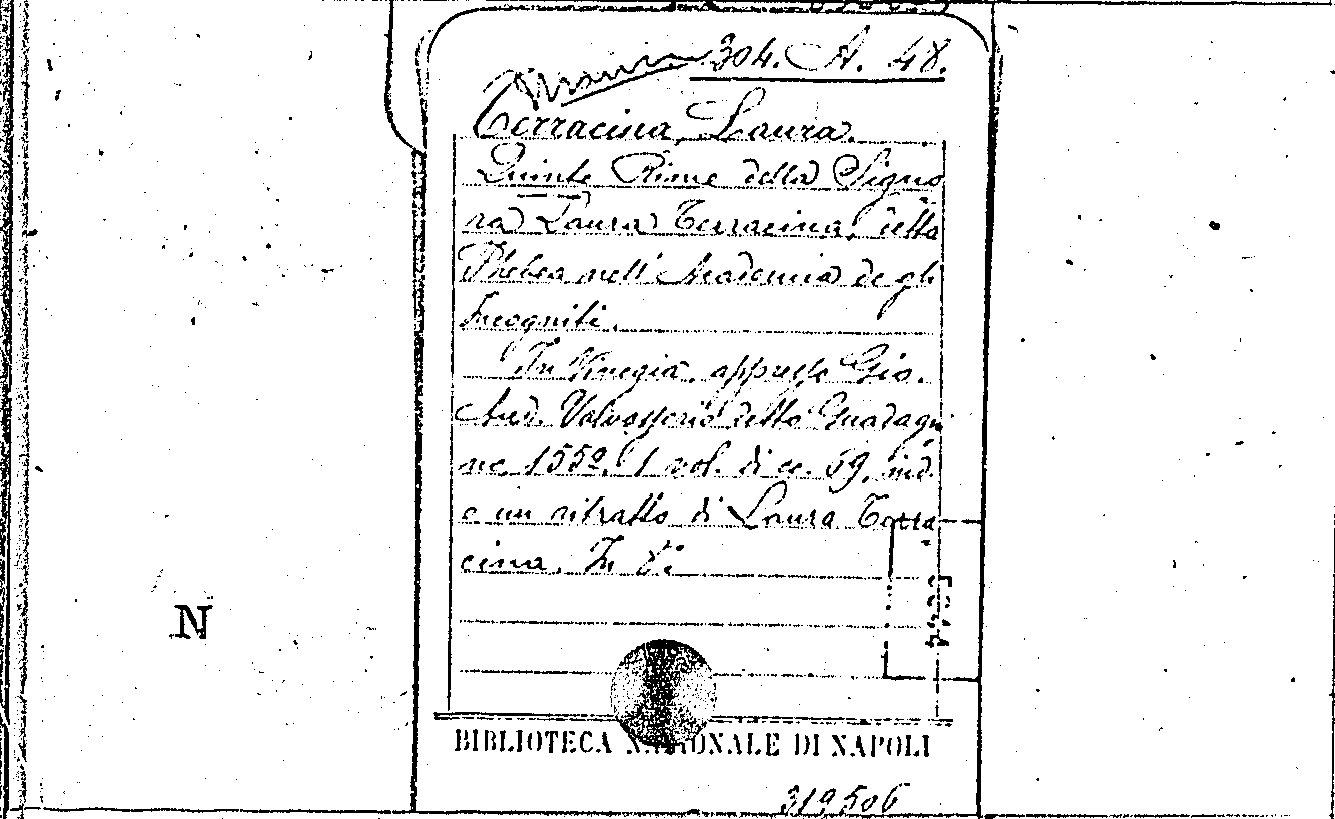 Manca 304. A. 48.
Terracina, Laura.
Quinte Rime della Signo
ra Laura Terracina, detta
Phebea nell' Academia de gli
Incogniti.
In Vinegia, appresso Gio.
And. Valvassorio detto Guadagni
no 1552. 1 vol. di cc. 69, ind.
e un ritratto di Laura Terra-
cina. In 8.
N
BIBLIOTECA NAZIONALE DI NAPOLI
319506